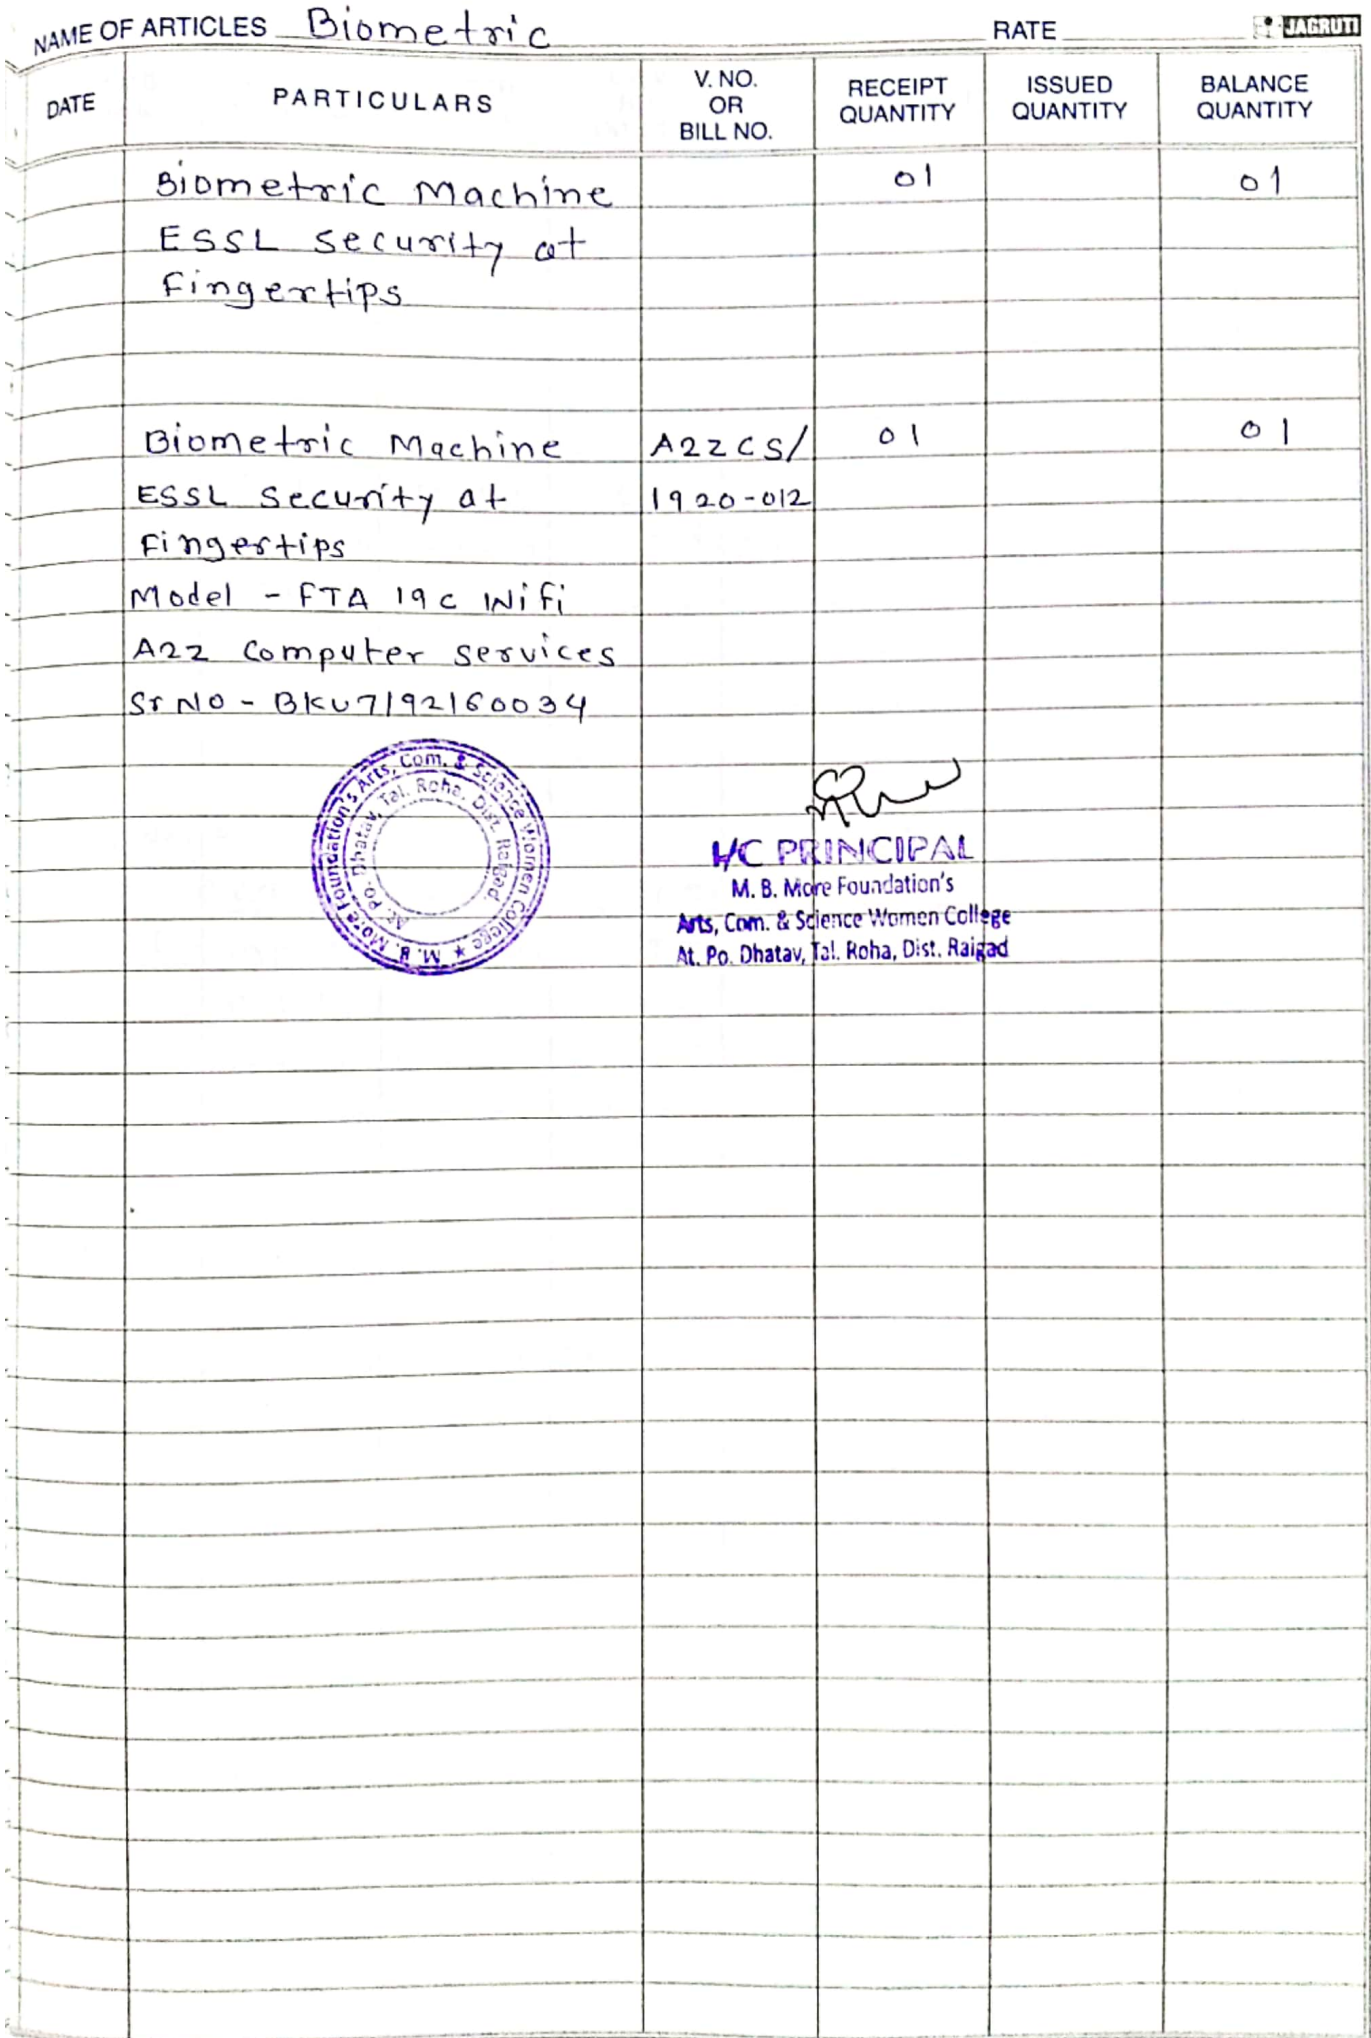 NAME OF ARTICLES Biometric RATE JAGRUTI
DATE PARTICULARS V. NO. OR BILL NO. RECEIPT QUANTITY ISSUED QUANTITY BALANCE QUANTITY
Biometric Machine 01 01
ESSL Security at
Fingertips
Biometric Machine A2ZCS/ 01 01
ESSL Security at 1920-012
Fingertips
Model - FTA 19c Wifi
A2Z Computer services
Sr No - BKU7192160034
M. B. More Foundation's Arts, Com. & Science Women College ★
At. Po. Dhatav, Tal. Roha, Dist. Raigad.
I/C PRINCIPAL
M. B. More Foundation's
Arts, Com. & Science Women College
At. Po. Dhatav, Tal. Roha, Dist. Raigad